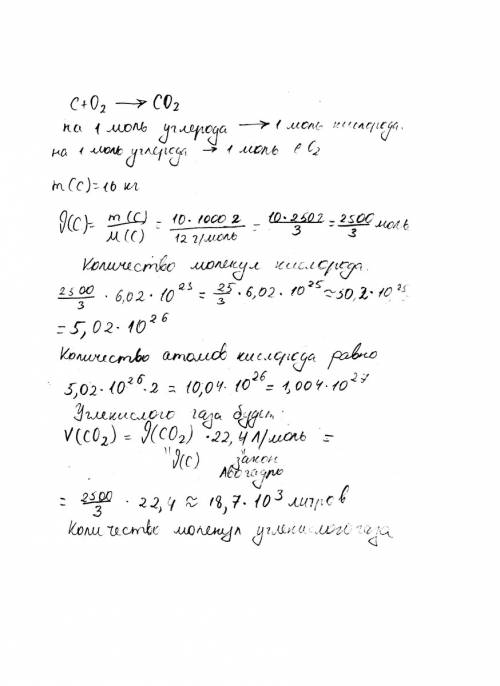 C+O₂ ⟶ CO₂
на 1 моль углерода ⟶ 1 моль кислорода.
на 1 моль углерода → 1 моль CO₂
m(C)=10 кг
ϑ(C)= m(C)/M(C) = 10·1000 г/12 г/моль = 10·250 2/3 = 2500/3 моль
Количество молекул кислорода.
2500/3 · 6,02·10²³ = 25/3 · 6,02·10²⁵ ≈ 50,2·10²⁵
= 5,02·10²⁶
Количество атомов кислорода равно
5,02·10²⁶·2 = 10,04·10²⁶ = 1,004·10²⁷
Углекислого газа будет:
V(CO₂) = ϑ(CO₂) · 22,4 Л/моль =
" ϑ(C) закон
Авогадро
= 2500/3 · 22,4 ≈ 18,7·10³ литров
Количество молекул углекислого газа